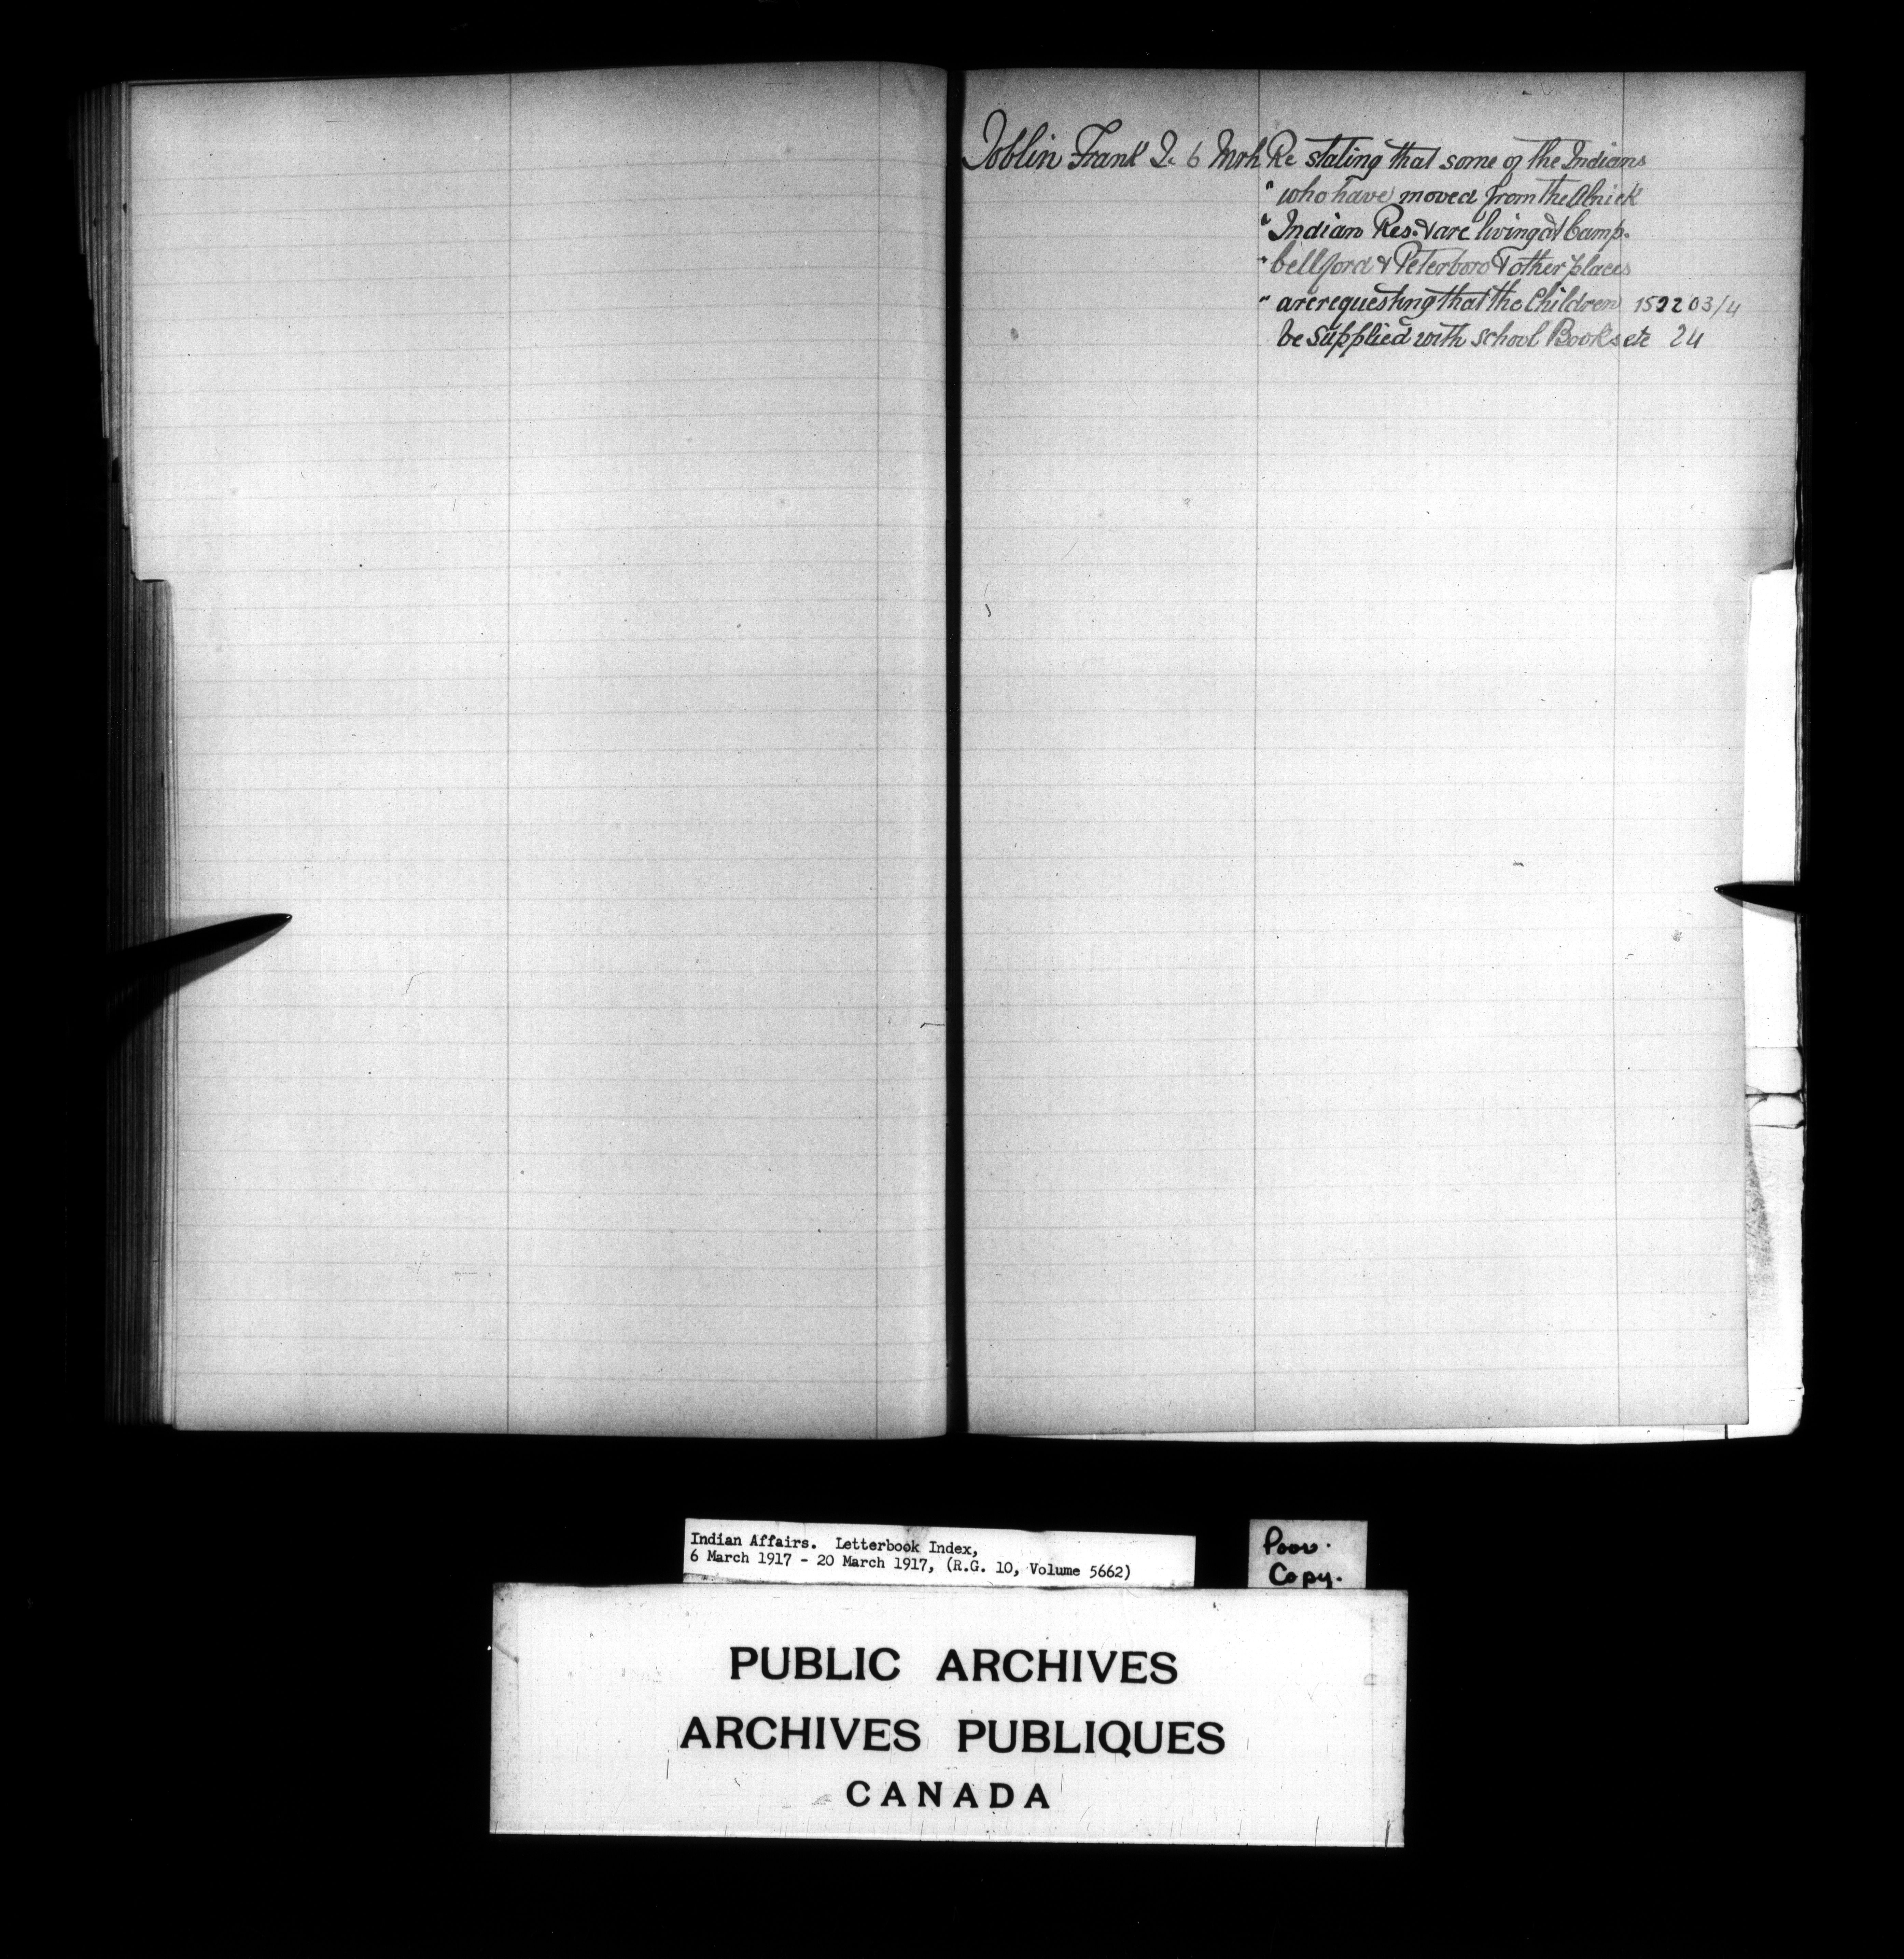 Joblin Frank J. 6 Mrh Re stating that some of the Indians
" who have moved from the Alnick
" Indian Res. & are living at Camp-
" bellford & Peterboro & other places
" are requesting that the Children 152203/4
be supplied with school Books etc 24
Indian Affairs. Letterbook Index,
6 March 1917 - 20 March 1917, (R.G. 10, Volume 5662)
Poor.
Copy.
PUBLIC ARCHIVES
ARCHIVES PUBLIQUES
CANADA